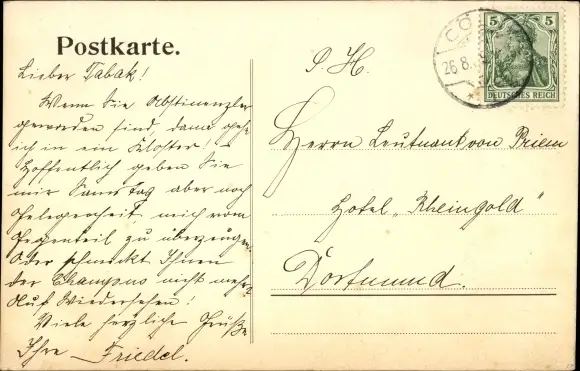 Postkarte.
Lieber Tabak!
Wenn Sie Abstinenzler
geworden sind, dann gehe
ich in ein Kloster! -
Hoffentlich geben Sie
mir Samstag aber noch
Gelegenheit, mich vom
Gegenteil zu überzeugen.
Oder schmeckt Ihnen
der Champus nicht mehr?
Auf Wiedersehen!
Viele herzliche Grüße
Ihre Friedel.
CÖ
26.8.
5 5
DEUTSCHES REICH
S. H.
Herrn Leutnant von Briem
Hotel „Rheingold"
Dortmund.